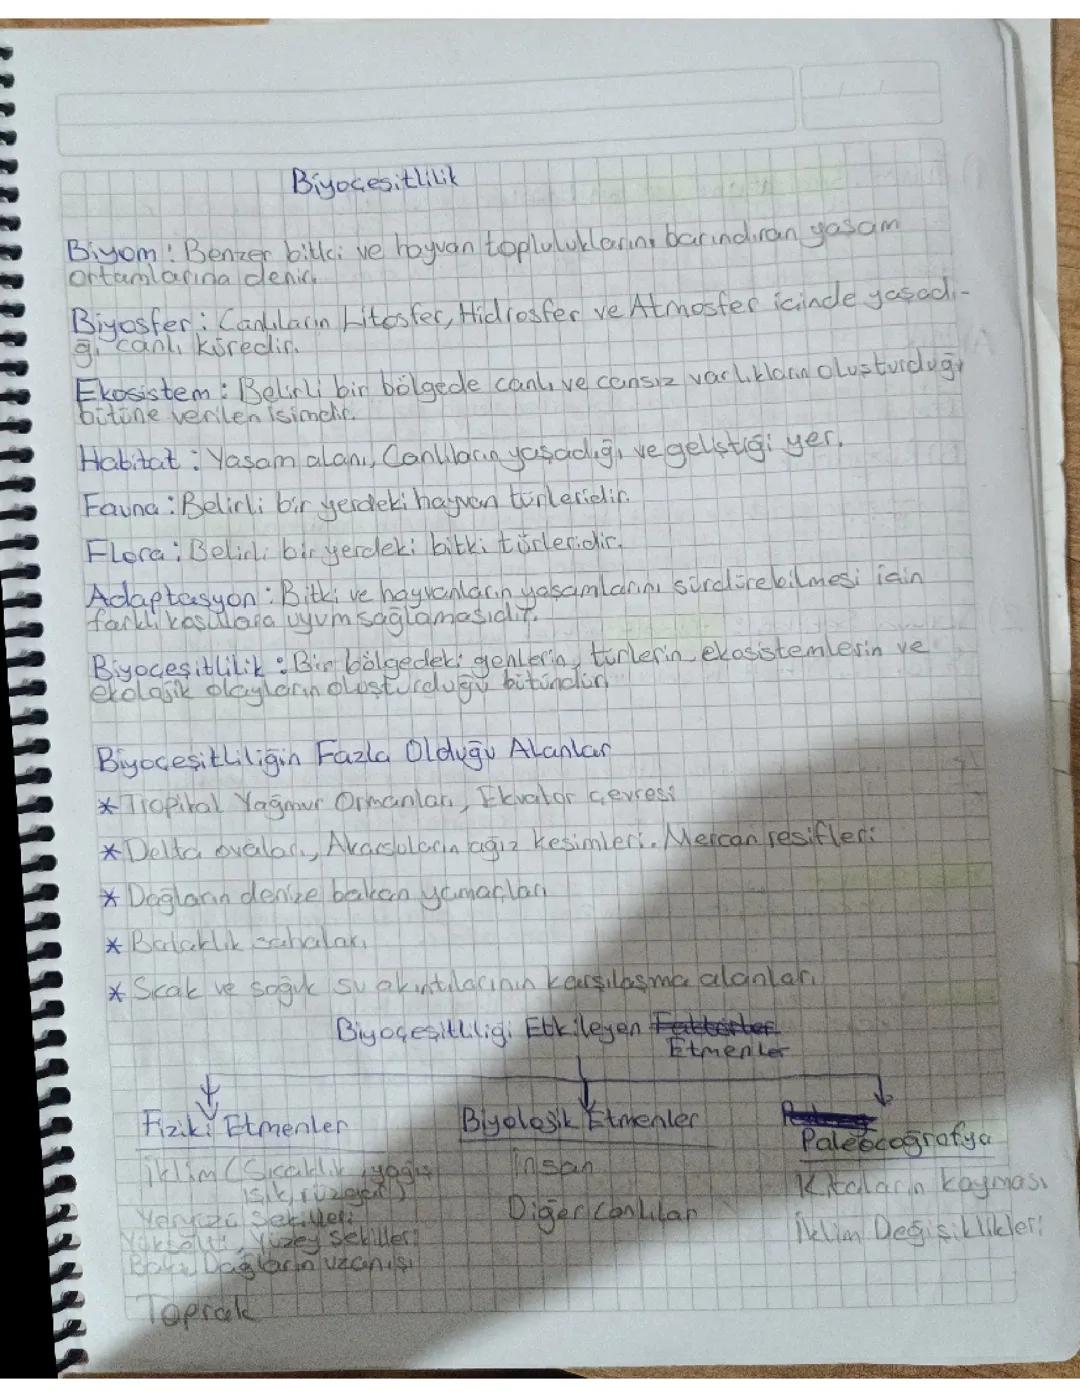 Biyoçeşitlilik
Biyom : Benzer bitki ve hayvan topluluklarını barındıran yaşam
ortamlarına denir.
Biyosfer : Canlıların Litosfer, Hidrosfer ve Atmosfer içinde yaşadı-
ğı canlı küredir.
Ekosistem : Belirli bir bölgede canlı ve cansız varlıkların oluşturduğu
bütüne verilen isimdir.
Habitat : Yaşam alanı, Canlıların yaşadığı ve geliştiği yer.
Fauna : Belirli bir yerdeki hayvan türleridir.
Flora : Belirli bir yerdeki bitki türleridir.
Adaptasyon : Bitki ve hayvanların yaşamlarını sürdürebilmesi için
farklı koşullara uyum sağlamasıdır.
Biyoçeşitlilik : Bir bölgedeki genlerin, türlerin ekosistemlerin ve
ekolojik olayların oluşturduğu bütündür.
Biyoçeşitliliğin Fazla Olduğu Alanlar
* Tropikal Yağmur Ormanları, Ekvator çevresi
* Delta ovaları, Akarsuların ağız kesimleri. Mercan resifleri
* Dağların denize bakan yamaçları
* Bataklık sahaları
* Sıcak ve soğuk su akıntılarının karşılaşma alanları
Biyoçeşitliliği Etkileyen Faktörler
Etmenler
Fiziki Etmenler
İklim (Sıcaklık, yağış
ışık, rüzgar)
Yeryüzü Şekilleri
Yükselti, Yüzey Şekilleri
Bakı, Dağların uzanışı
Toprak
Biyolojik Etmenler
İnsan
Diğer Canlılar
Paleocoğrafya
Kıtaların kayması
İklim Değişiklikleri